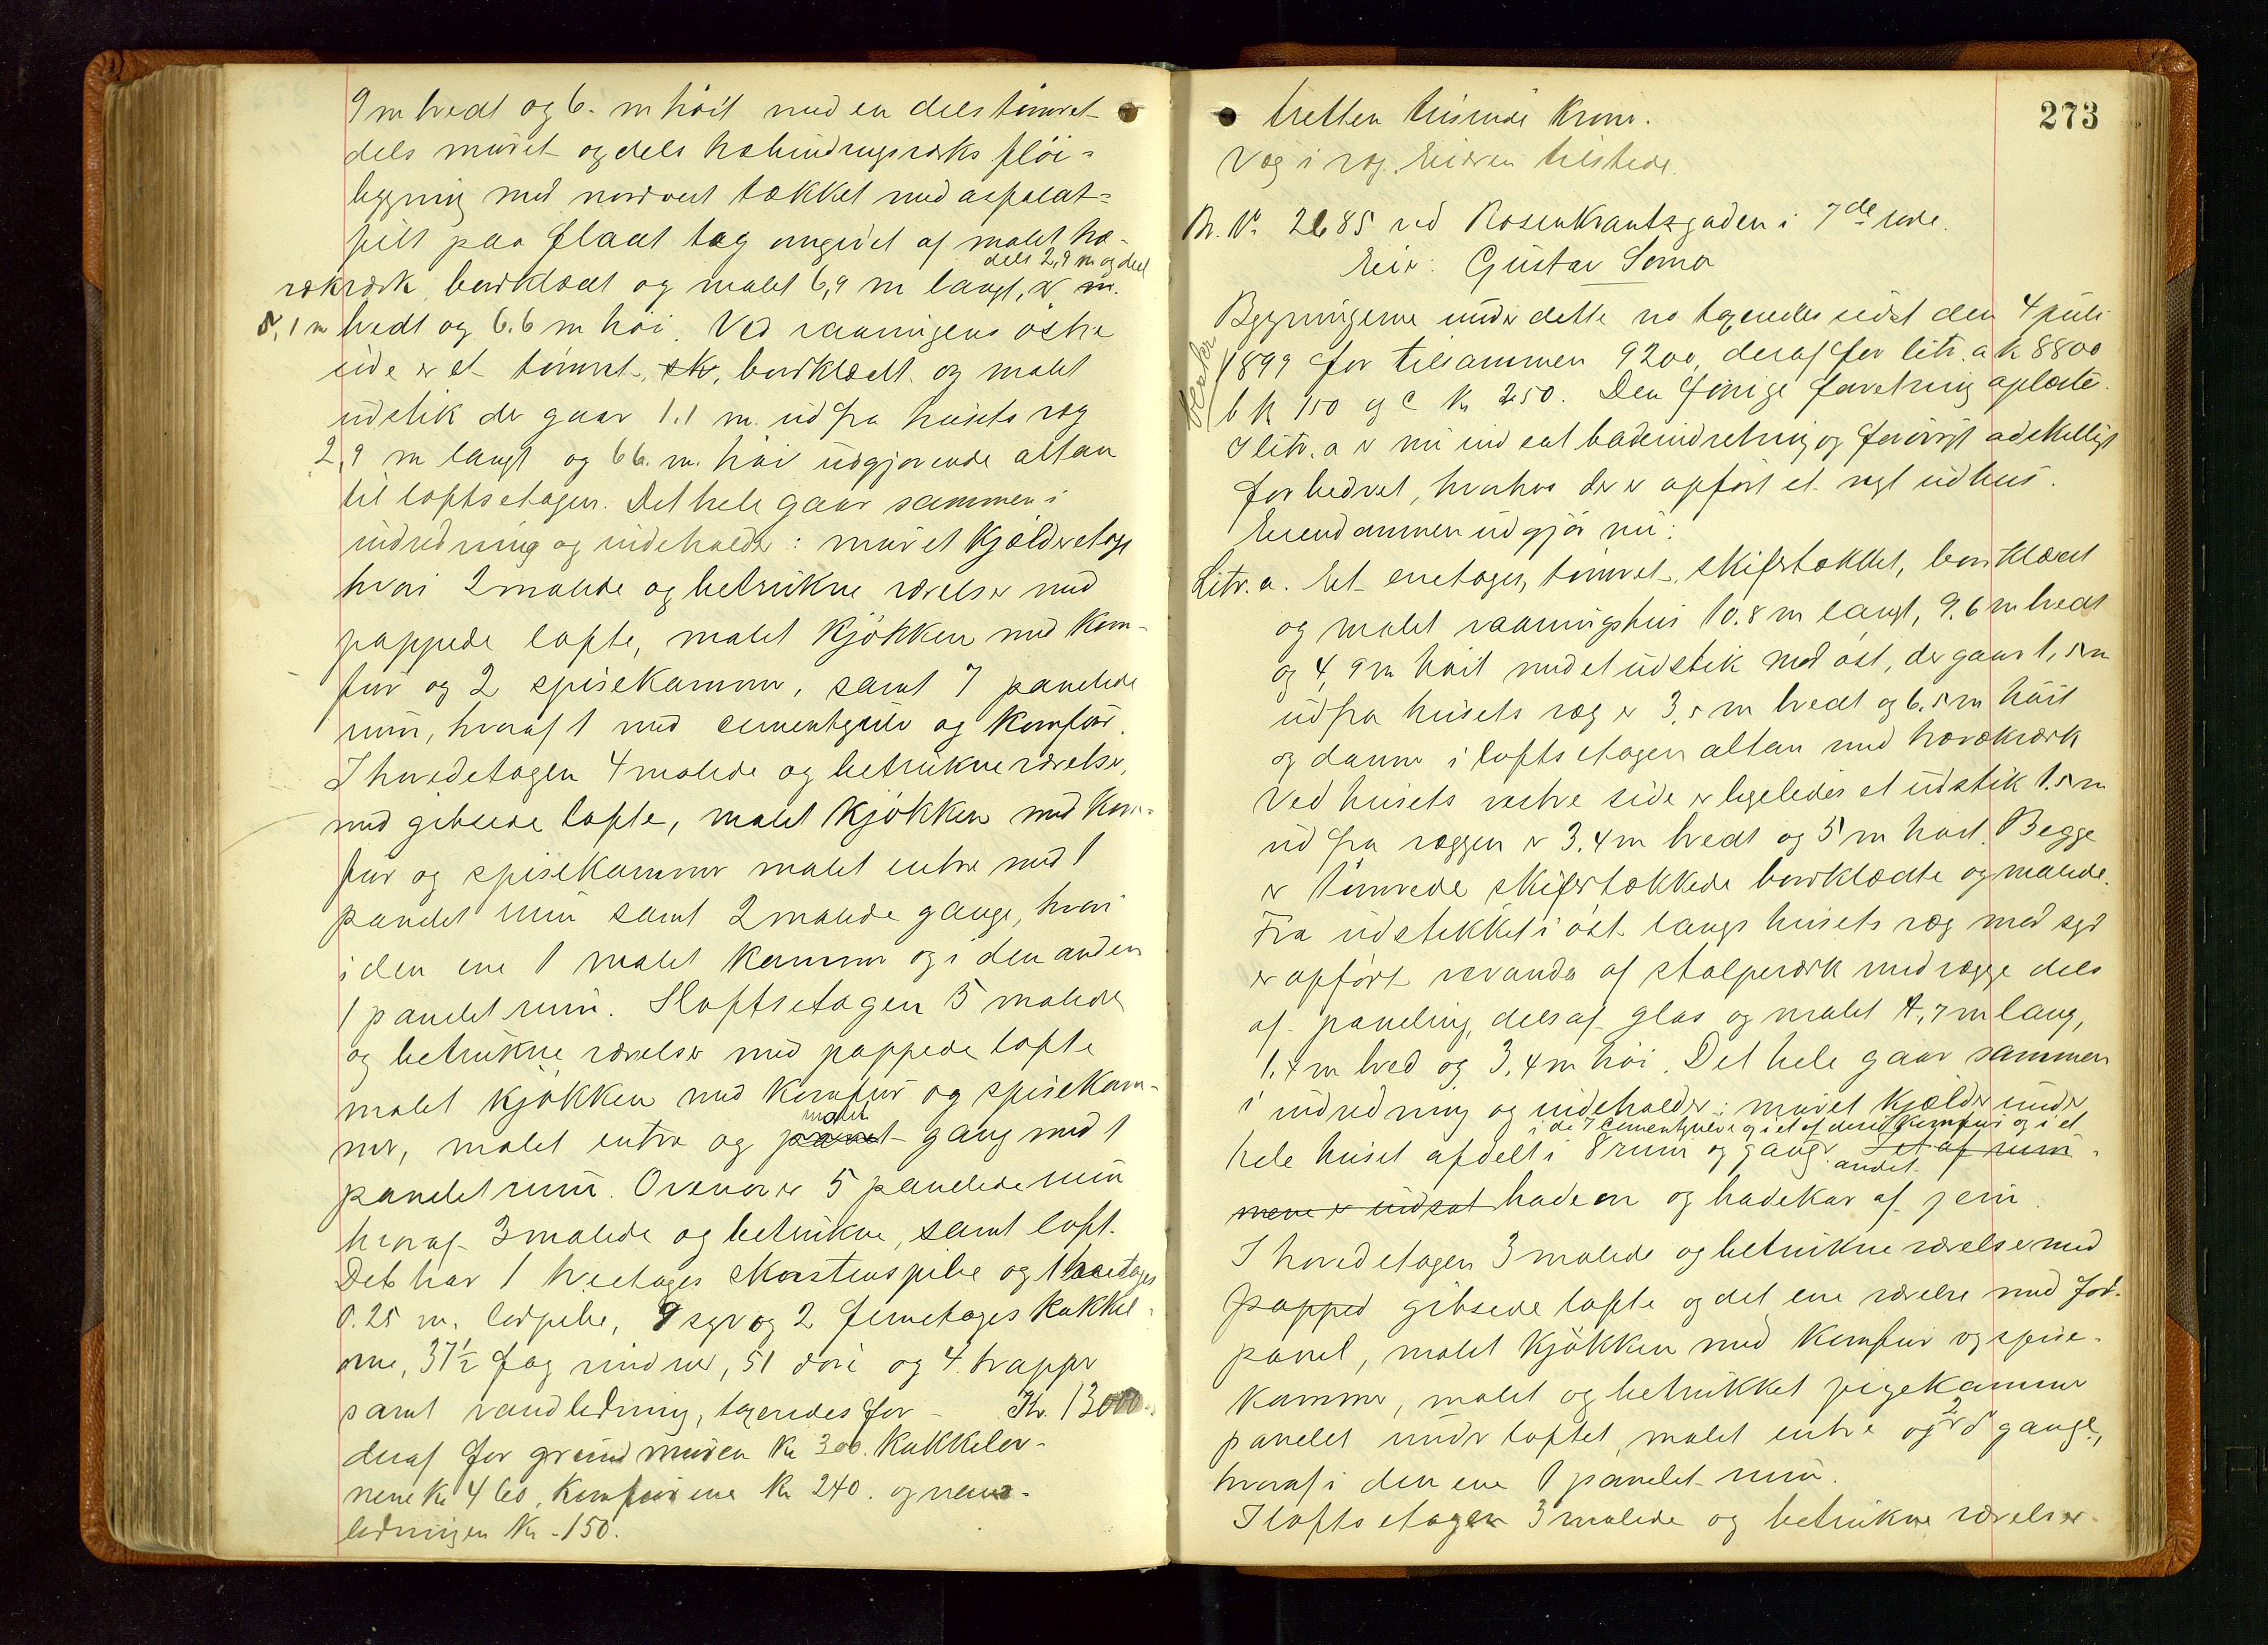 9 m bredt og 6. m höit med en dels tömret
dels muret og dels trebindingsværks flöi-
bygning mod nordvest tækket med aspalat-
filt paa fladt tag omgivet af malet træ-
rækværk, bordklædt og malet 6,9 m langt, dels 2,9 m og dels
5,1 m bredt og 6.6 m höi. Ved vaaningens östre
side er et tömret, sk, bordklædt og malet
udstik der gaar 1.1 m. ud fra husets væg
2,9 m langt og 6 6. m. höi udgjörende altan
til loftsetagen. Det hele gaar sammen i
indredning og indeholder: muret kjælderetage
hvori 2 malede og betrukne værelser med
pappede lofte, malet kjökken med kom-
fur og 2 spisekammer, samt 7 panelede
rum, hvoraf 1 med cementgulv og komfur.
I hovedetagen 4 malede og betrukne værelser,
med gibsede lofte, malet kjökken med kom-
fur og spisekammer malet entre med 1
panelet rum samt 2 malede gange, hvori
i den ene 1 malet kammer og i den anden
1 panelet rum. I loftsetagen 5 malede
og betrukne værelser med pappede lofte
malet kjökken med komfur og spisekam-
mer, malet entre og malet gang med 1
panelet rum. Ovenover 5 panelede rum
hvoraf 3 malede og betrukne, samt loft.
Det har 1 treetages skorstenspibe og 1 toetages
0.25 m. lerpibe, 9 syv og 2 femetages kakkel-
ovne, 37½ fag vinduer, 51 döre og 4 trapper
samt vandledning, taxeredes for - Kr. 13000
deraf for grundmuren Kr 300. kakkelov-
nene Kr 460, komfurene Kr 240. og vand-
ledningen Kr - 150.
273
tretten tusinde kroner.
Væg i væg. Eieren tilstede.
Br. No 2685 ved Rosenkrantzgaden i 7de rode.
Eier: Gustav Sömo
Bygningerne under dette no taxeredes sidst den 4 juli
1899 for tilsammen 9200, deraf for litr. a k 8800
b k 150 og c k 250. Den forrige forretning oplæstes.
I litr. a er nu indsat badeindretning og forövrigt adskilligt
forbedret, hvorhos der er opfört et nyt udhus.
Eiendommen udgjör nu:
Litr. a. Et enetages, tömret, skifertækket, bordklædt
og malet vaaningshus 10.8 m langt, 9.6 m bredt
og 4,9 m höit med et udstik mod öst, der gaar 1,5 m
ud fra husets væg er 3,5 m bredt og 6.5 m höit
og danner i loftsetagen altan med trærækværk
Ved husets vestre side er ligeledes et udstik 1.5 m
ud fra væggen er 3.4 m bredt og 5 m höit. Begge
er tömrede skifertækkede bordklædte og malede.
Fra udstikket i öst langs husets væg mod syd
er opfört veranda af stolpeværk med vægge dels
af paneling, dels af glas og malet 4,7 m lang,
1,4 m bred og 3,4 m höi. Det hele gaar sammen
i indredning og indeholder: muret kjælder under
i de 7 cementgulv og i et af disse komfur og i et
hele huset afdelt i 8 rum og gang. I et af rum-
andet
mene er indsat badeovn og badekar af jern.
I hovedetagen 3 malede og betrukne værelser med
papped gibsede lofte og det ene værelse med for-
panel, malet kjökken med komfur og spise-
kammer, malet og betrukket pigekammer
panelet under loftet, malet entre og 2 gange,
hvoraf i den ene 1 panelet rum.
I loftsetagen 3 malede og betrukne værelser